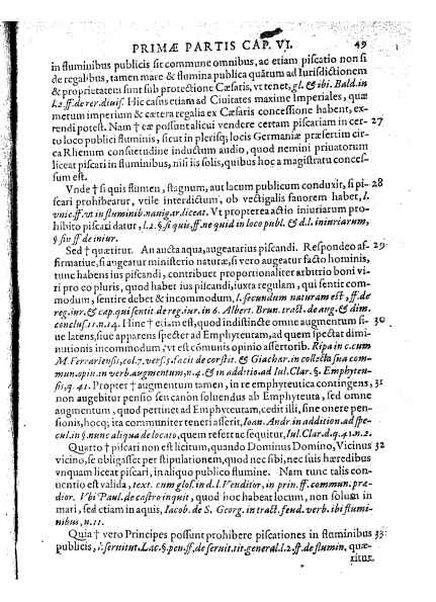 PRIMÆ PARTIS CAP. VI. 49
in fluminibus publicis sit commune omnibus, ac etiam piscatio non si
de regalibus, tamen mare & flumina publica quātum ad Iurisdictionem
& proprietatem sunt sub protectione Cæsaris, vt tenet, gl. & ibi. Bald. in
l. 2. ff. de rer. diuis. Hic casus etiam ad Ciuitates maxime Imperiales, quæ
merum imperium & cætera regalia ex Cæsaris concessione habent, ex-
tendi potest. Nam † eæ possunt alicui vendere certam piscariam in cer- 27
to loco publici fluminis, sicut in plerisq; locis Germaniæ præsertim cir-
ca Rhenum consuetudine inductum audio, quod nemini priuatorum
liceat piscari in fluminibus, nisi iis solis, quibus hoc a magistratu conces-
sum est.
Vnde † si quis flumen, stagnum, aut lacum publicum conduxit, si pi- 28
scari prohibeatur, vtile interdictum, ob vectigalis fauorem habet, l.
vnic. ff. vt in flumin b. nauigar. liceat. Vt propterea actio iniuriarum pro-
hibito piscari datur, l. 2. § si quis, ff. ne quid in loco publ. & d. l. iniuriarum,
§ fin ff de iniur.
Sed † quæritur. An aucta aqua, augeatur ius piscandi. Respondeo af- 29
firmatiue, si augeatur ministerio naturæ, si vero augeatur facto hominis,
tunc habens ius piscandi, contribuet proportionaliter arbitrio boni vi-
ri pro eo pluris, quod habet ius piscandi, iuxta regulam, qui sentit com-
modum, sentire debet & incommodum, l. secundum naturam est, ff. de
reg. iur. & cap. qui sentit de reg. iur. in 6. Albert. Brun. tract. de aug. & dim.
conclus. 11. n. 14. Hinc † etiam est, quod indistincte omne augmentum si- 30
ue latens, siue apparens spectet ad Emphyteutam, ad quem spectat dimi-
nutionis incommodum, vt est cōmunis opinio assertorib. Ripa in c. cum
M. Ferrariensis, col. 7. vers. 5. facit de constit. & Giachar. in collecta sua com-
mun. opin. in verb. augmentum, n. 4. & in additio. ad Iul. Clar. §. Emphyten-
sis, q. 41. Propter † augmentum tamen, in re emphyteutica contingens, 31
non augebitur pensio seu canon soluendus ab Emphyteuta, sed omne
augmentum, quod pertinet ad Emphyteutam, cedit illi, sine onere pen-
sionis, hocq; ita communiter teneri asserit, Ioan. Andr. in addition. ad spe-
cul. in §. nunc aliqua de locato, quem refert ac sequitur, Iul. Clar. d. q. 41. n. 2.
Quarto † piscari non est licitum, quando Dominus Domino, Vicinus 32
vicino, se obligasset per stipulationem, quod nec sibi, nec suis hæredibus
vnquam liceat piscari, in aliquo publico flumine. Nam tunc talis con-
uentio est valida, text. cum glos. in d. l. Venditor, in prin. ff. commun. præ-
dior. Vbi Paul. de castro inquit, quod hoc habeat locum, non solum in
mari, sed etiam in aquis, Iacob. de S. Georg. in tract. feud. verb. ibi flumi-
nibus, n. 11.
Quia † vero Principes possunt prohibere piscationes in fluminibus 33
publicis, l. seruitut. Lac. § pen. ff. de seruit. tit. general. l. 2. ff. de flumin. quæ-
ritur.